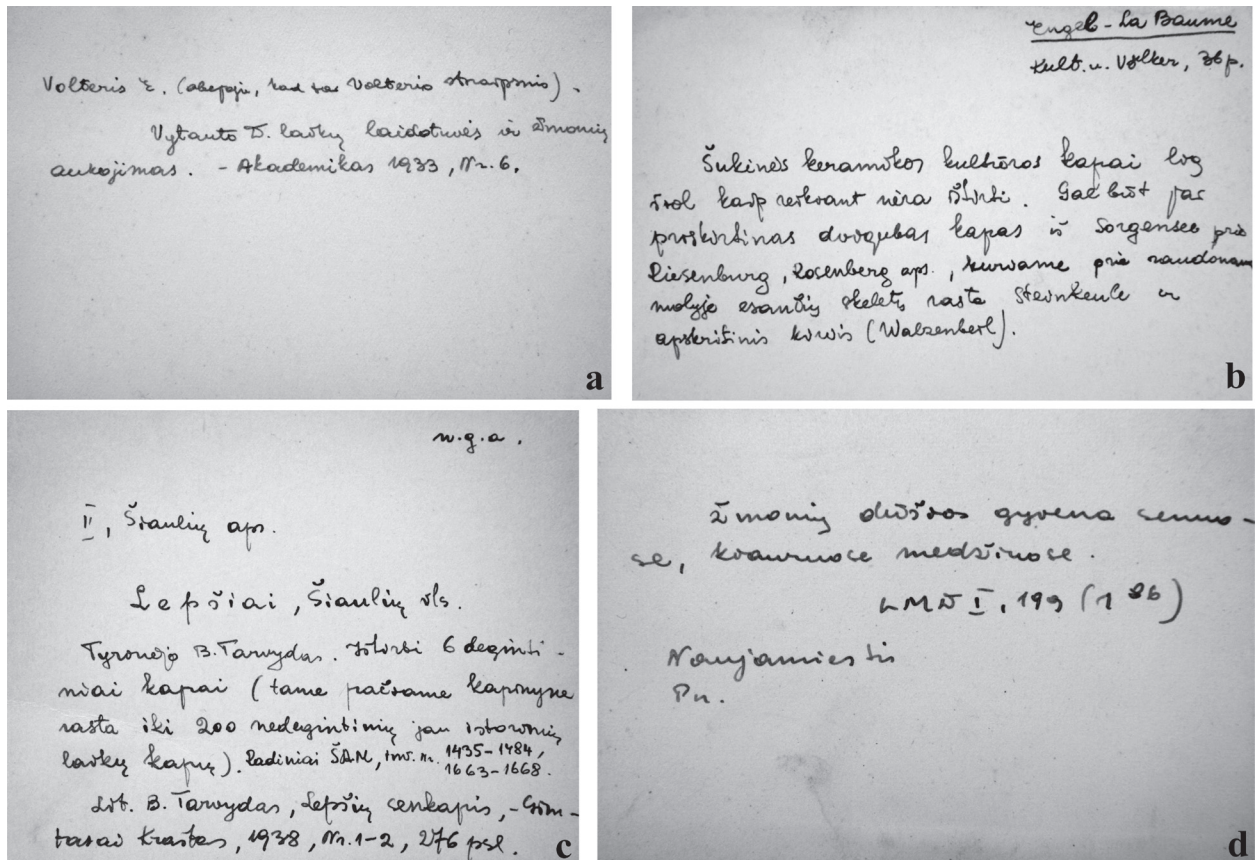 Volteris E. (abejoju, kad tai Volterio straipsnis).
Vytauto D. laikų laidotuvės ir žmonių
aukojimas. - Akademikas 1933, Nr. 6.
a
Engel - La Baume
Kult. u. Völker, 36 p.
Šukinės keramikos kultūros kapai lig
šiol kaip reikiant nėra ištirti. Gal būt jai
priskirtinas dvigubas kapas iš Sorgensee prie
Riesenburg, Rosenberg aps., kuriame prie raudonam
molyje esančių skeletų rasta Steinkeule ir
apskritinis kirvis (Walzenbeil).
b
n.g.a.
II, Šiaulių aps.
Lepšiai, Šiaulių vls.
Tyrinėjo B. Tarvydas. Ištirti 6 deginti-
niai kapai (tame pačiame kapinyne
rasta iki 200 nedegintinių jau istorinių
laikų kapų). Radiniai ŠAM, inv. nr. 1435-1484,
1663-1668.
Lit. B. Tarvydas, Lepšių senkapis, - Gim-
tasai Kraštas, 1938, Nr. 1-2, 276 psl.
c
Žmonių dūšios gyvena senuo-
se, kiauruose medžiuose.
LMD I, 199 (1 86)
Naujamiestis
Pn.
d